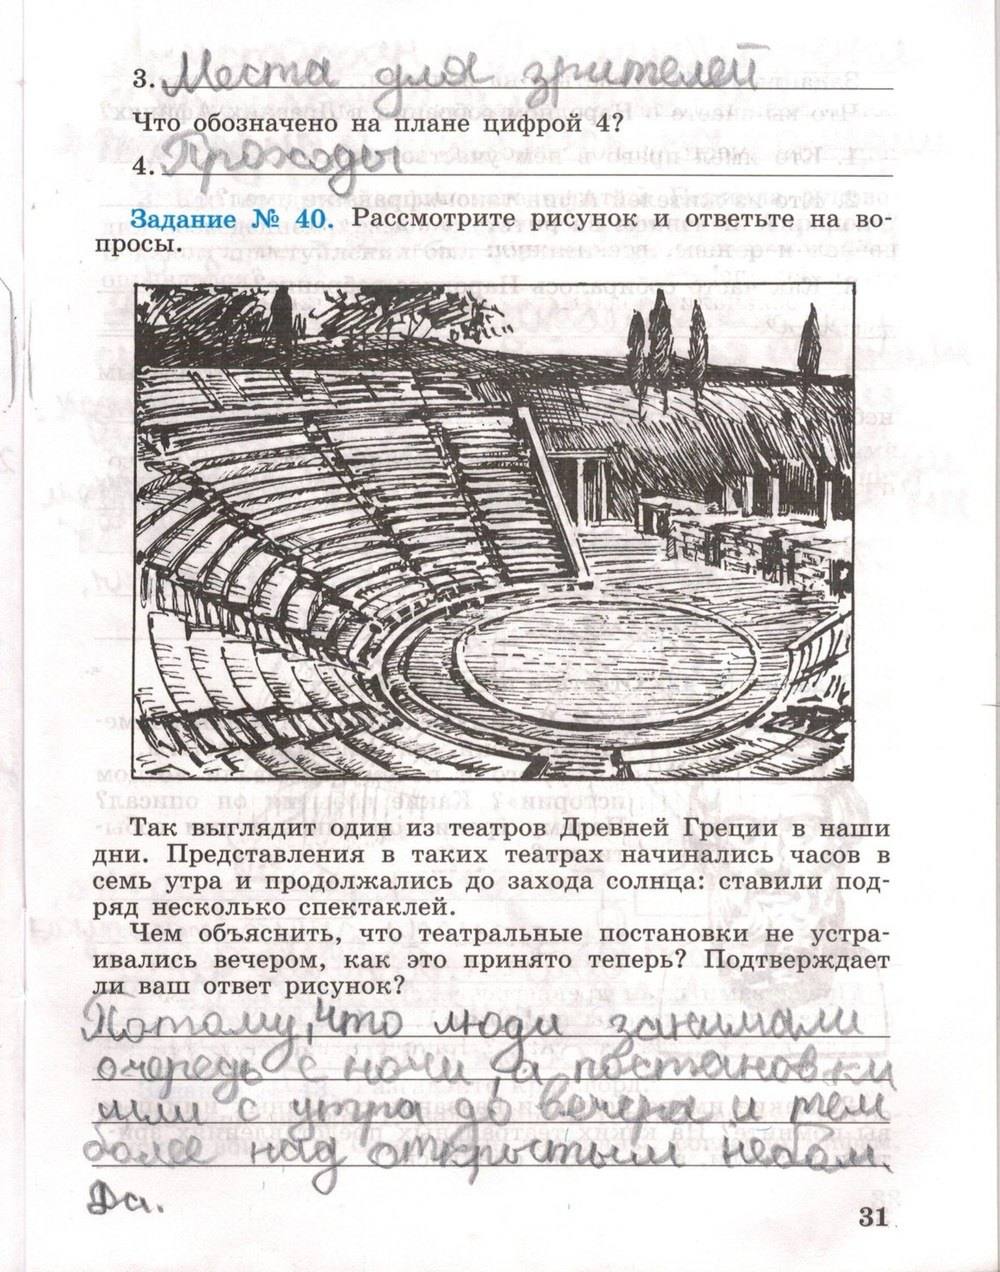 3. Места для зрителей
Что обозначено на плане цифрой 4?
4. Проходы
Задание № 40. Рассмотрите рисунок и ответьте на во-
просы.
Так выглядит один из театров Древней Греции в наши
дни. Представления в таких театрах начинались часов в
семь утра и продолжались до захода солнца: ставили под-
ряд несколько спектаклей.
Чем объяснить, что театральные постановки не устра-
ивались вечером, как это принято теперь? Подтверждает
ли ваш ответ рисунок?
Потому, что люди занимали
очередь с ночи, а постановки
шли с утра до вечера и тем
более над открытым небом.
Да.
31